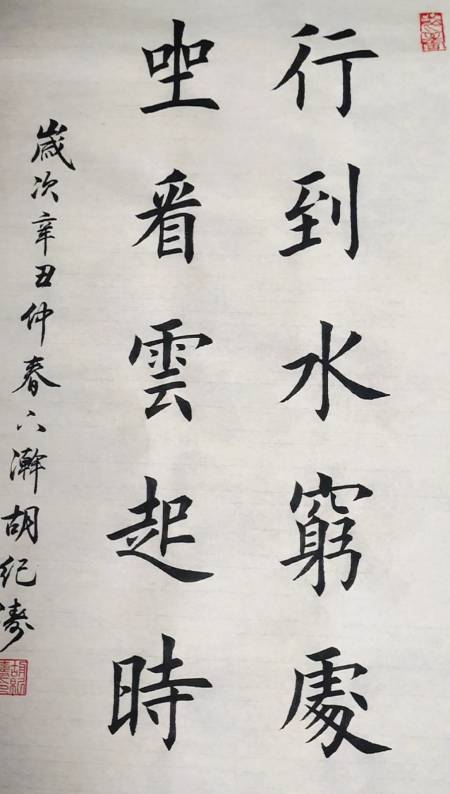 行到水窮處
坐看雲起時
歲次辛丑仲春下澣胡纪涛